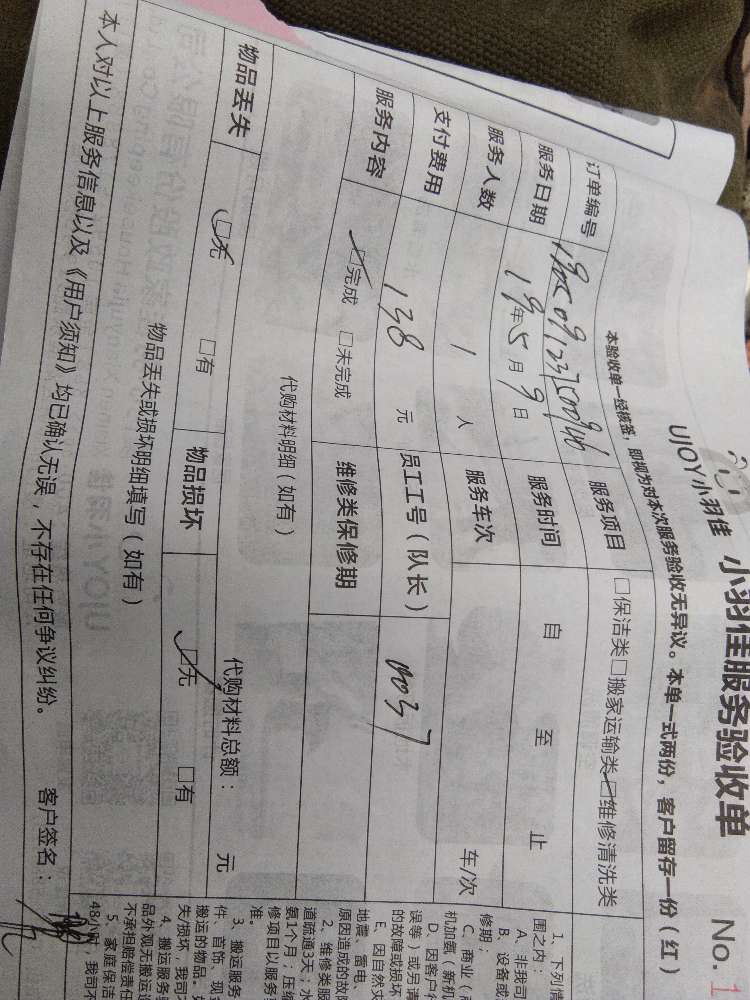 UJOY小羽佳 小羽佳服务验收单 No. 1
本验收单一经核签，即视为对本次服务验收无异议。本单一式两份，客户留存一份（红）
订单编号 服务项目 □保洁类□搬家运输类☑维修清洗类
服务日期 19年5月9日 服务时间 自 至 止
服务人数 1 人 服务车次 车/次
支付费用 138 元 员工工号（队长） 0037
服务内容 ☑完成 □未完成 维修类保修期
代购材料明细（如有） 代购材料总额： 元
物品丢失 ☑无 □有 物品损坏 ☑无 □有
物品丢失或损坏明细填写（如有）
本人对以上服务信息以及《用户须知》均已确认无误，不存在任何争议纠纷。 客户签名：
1、下列情
围之内：
A、非我司
B、设备或
修期；
C、商业（
机加氨（新机
D、因客户
误等）或另请
的故障或损坏
E、因自然灾
地震、雷电、
原因造成的故障
2、维修类服
道疏通3天；水
氨1个月；压缩
修项目以服务
准。
3、搬运服务
件、首饰、现金
搬运的物品。如
失/损坏，我司不
4、搬运服务
品外观无搬运
不承担赔偿责任
5、家庭保洁
48小时，我司不